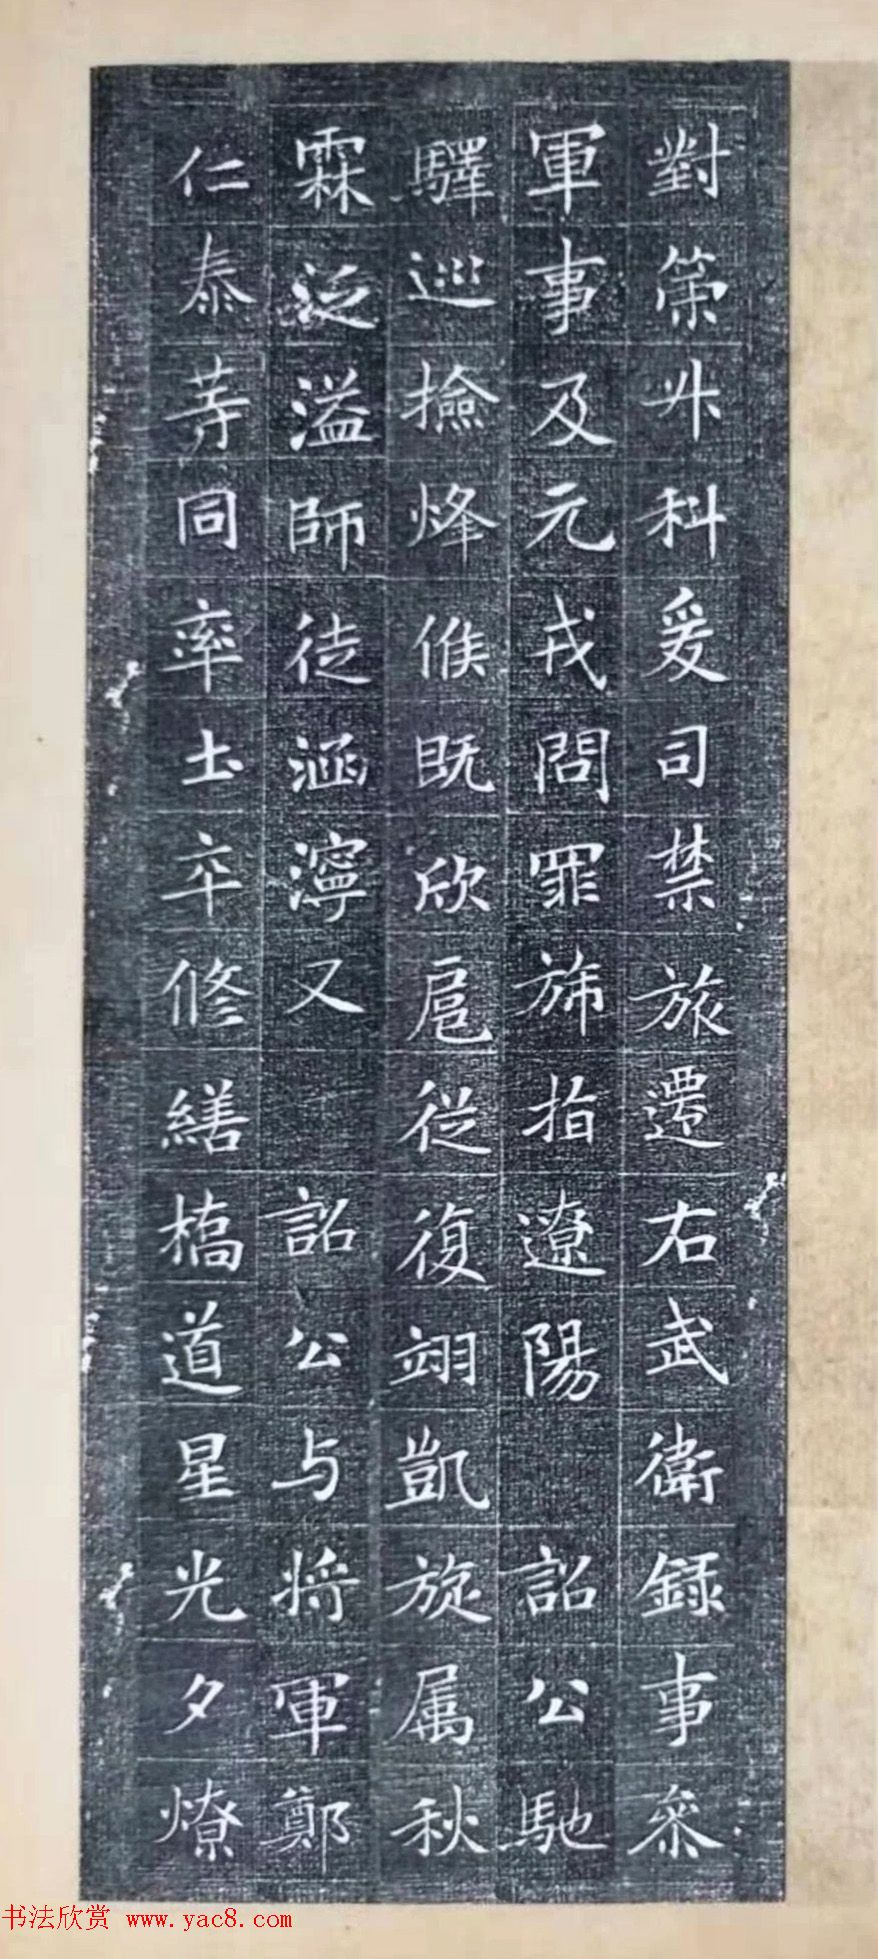 對策升科爰司禁旅遷右武衛録事叅
軍事及元戎問罪旆指遼陽 詔公馳
驛巡撿烽候既欣扈從復翊凱旋属秋
霖泛溢師徒涵濘又 詔公与將軍鄭
仁泰䓁同率士卒修繕橋道星光夕燎
书法欣赏 www.yac8.com